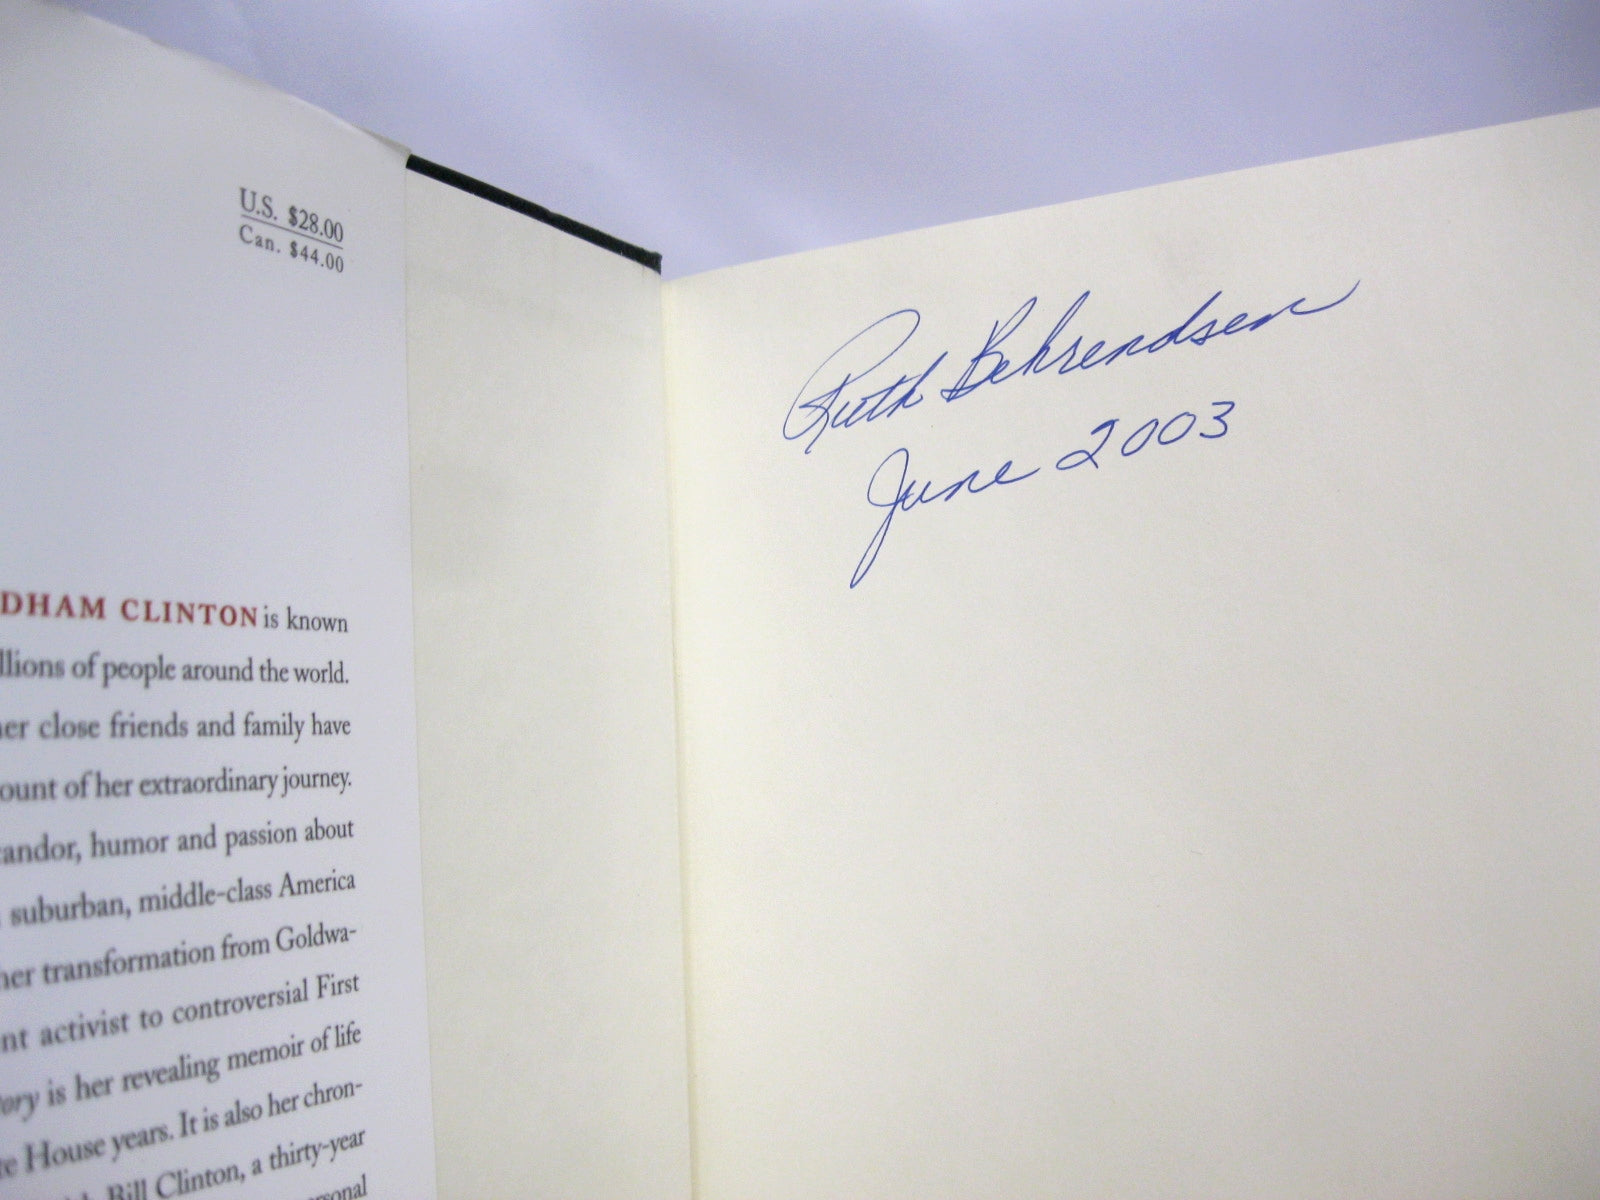 U.S. $28.00
Can. $44.00
DHAM CLINTON is known
llions of people around the world.
her close friends and family have
ount of her extraordinary journey.
candor, humor and passion about
suburban, middle-class America
her transformation from Goldwa-
nt activist to controversial First
ory is her revealing memoir of life
te House years. It is also her chron-
Bill Clinton, a thirty-year
ersonal
Ruth Behrendsen
June 2003